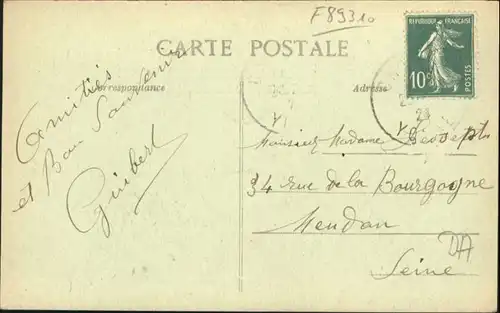 F89310
CARTE POSTALE
RÉPUBLIQUE FRANÇAISE
10c
POSTES
Correspondance
Adresse
Amitiés
et Bon Souvenir
Guibert
Monsieur Madame
34 rue de la Bourgogne
Meudon
Seine
23